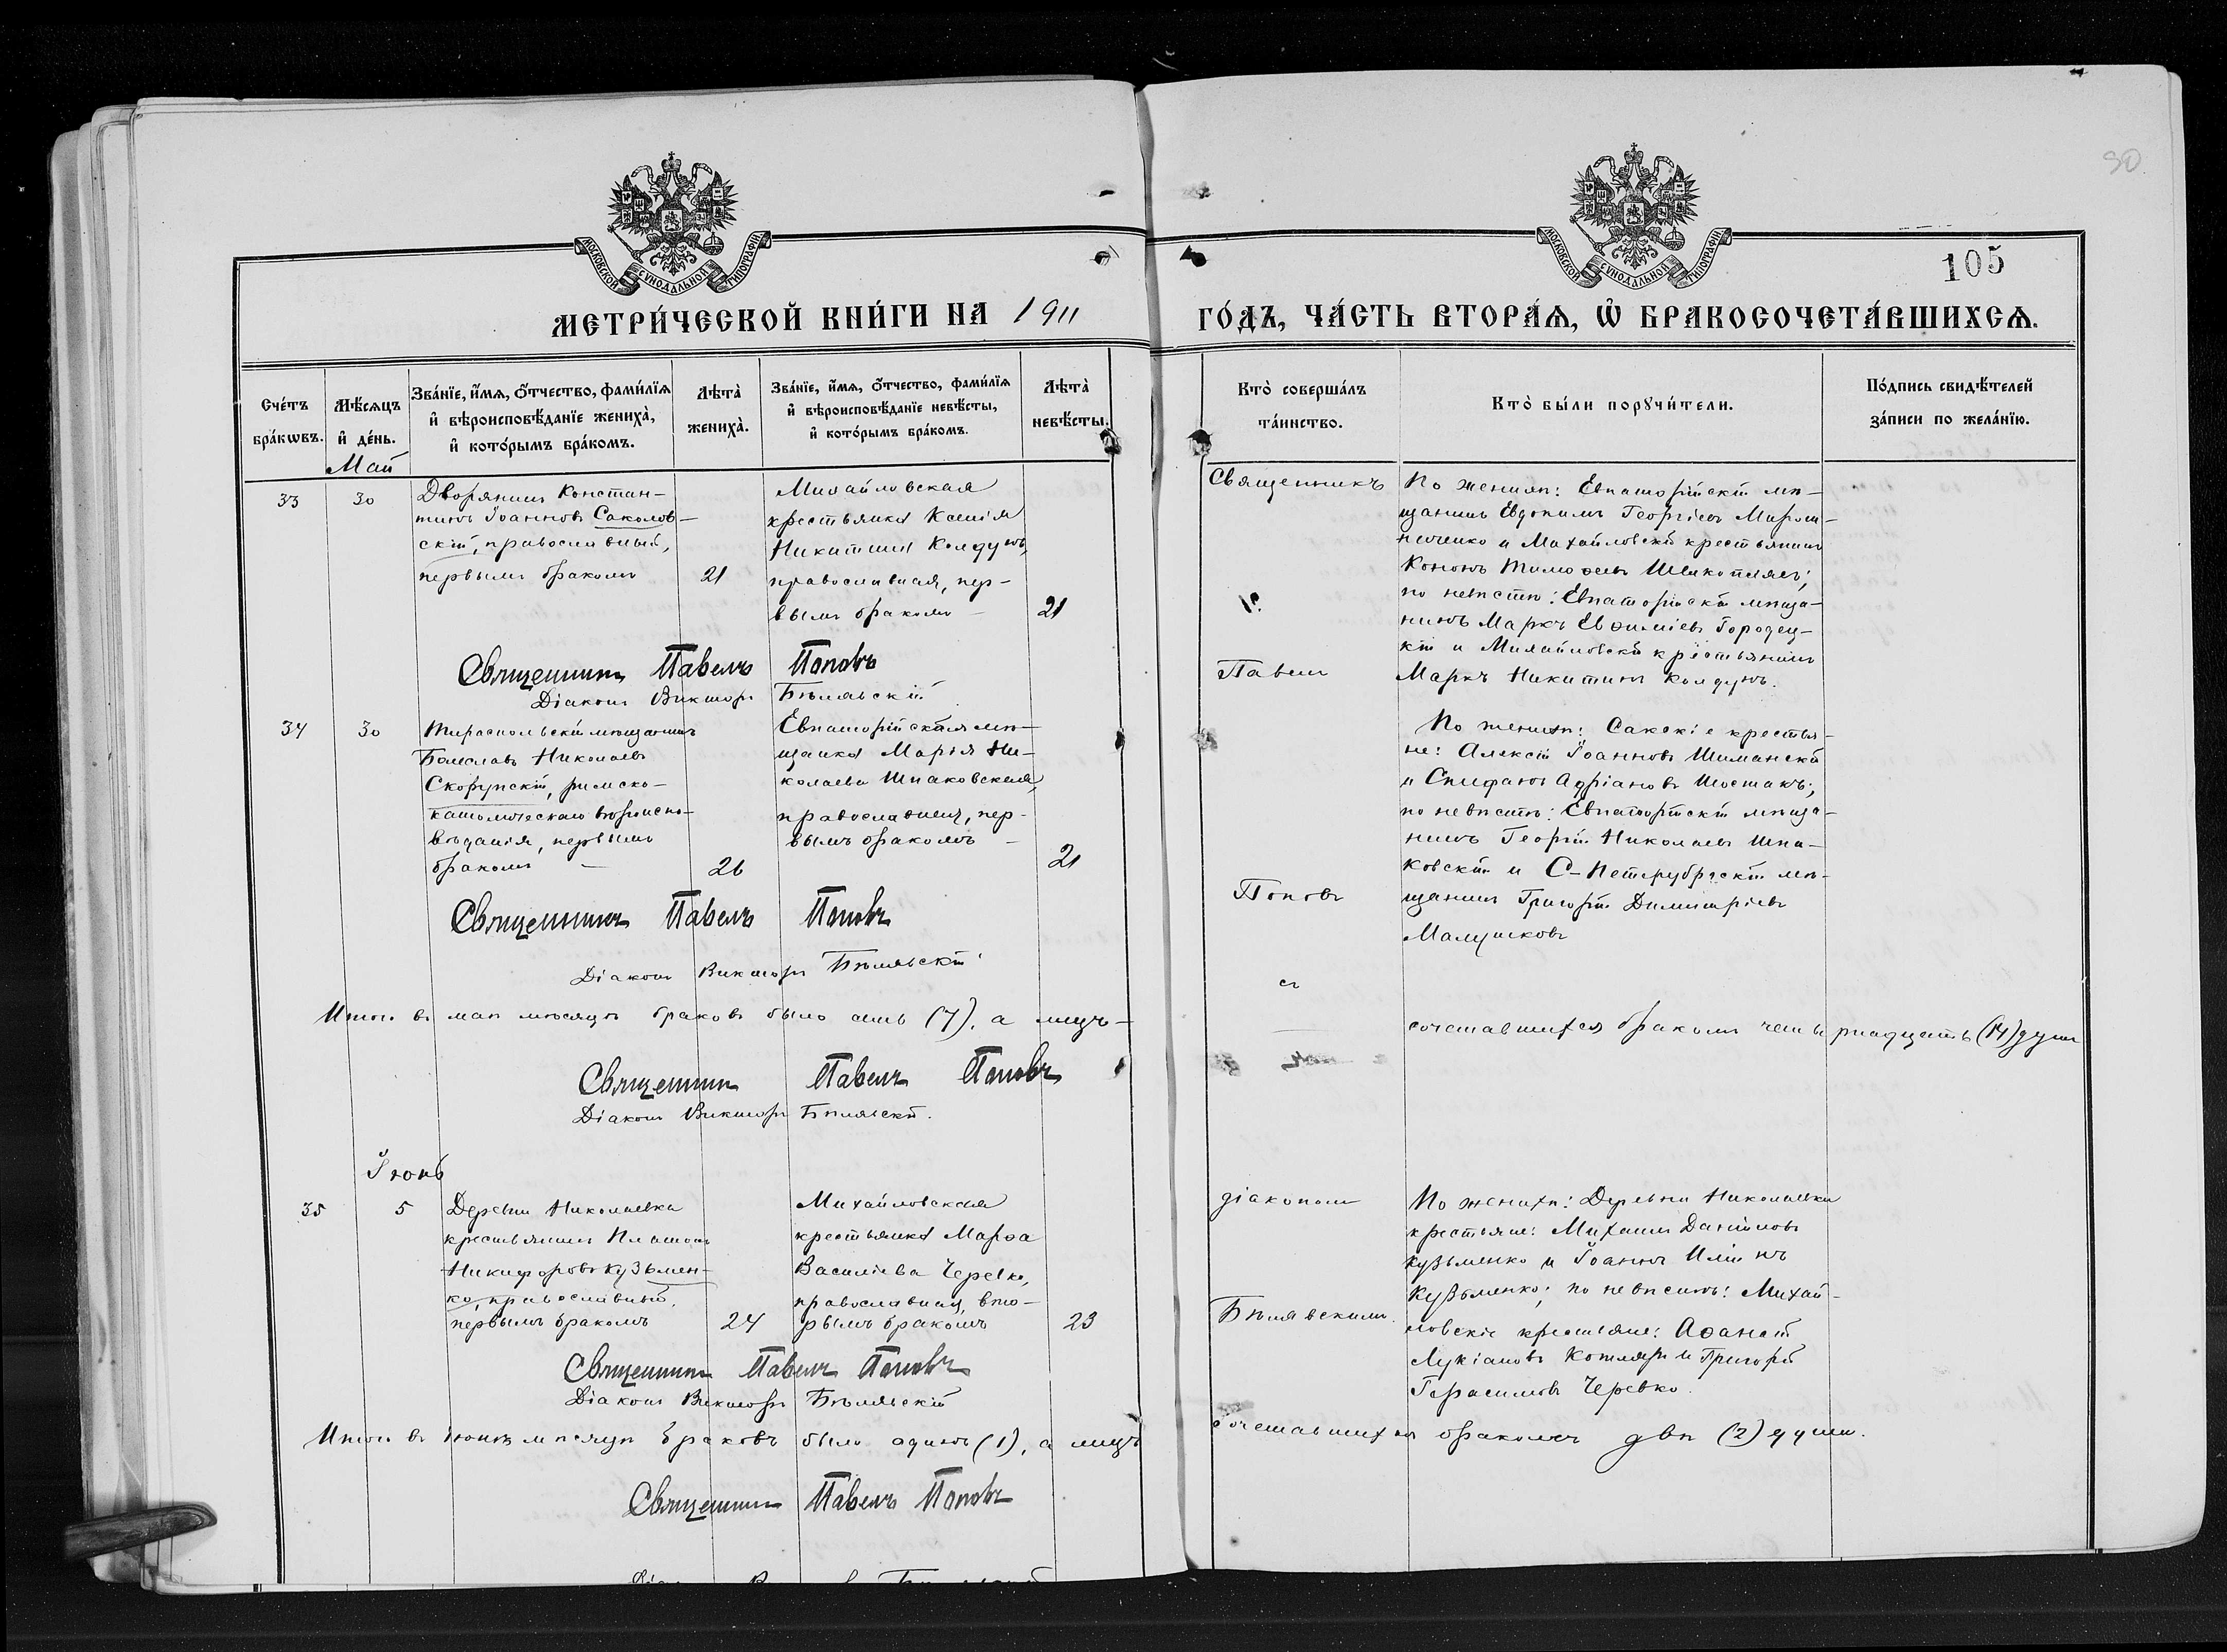 90
МОСКОВСКОЙ СУНОДАЛЬНОЙ ТИПОГРАФІИ.
МОСКОВСКОЙ СУНОДАЛЬНОЙ ТИПОГРАФІИ.
105
МЕТРИ́ЧЕСКОЙ КНИ́ГИ НА 1911 ГО́ДЪ, ЧА́СТЬ ВТОРА́Ѧ, Ѡ҆ БРАКОСОЧЕТА́ВШИХСѦ.
Сче́тъ бра́кѡвъ.
Мѣ́сѧцъ и҆ де́нь.
Зва́нїе, и҆́мѧ, ѻ҆́тчество, фами́лїѧ и҆ вѣроисповѣ́данїе жениха̀, и҆ кото́рымъ бра́комъ.
Лѣта̀ жениха̀.
Зва́нїе, и҆́мѧ, ѻ҆́тчество, фами́лїѧ и҆ вѣроисповѣ́данїе невѣ́сты, и҆ кото́рымъ бра́комъ.
Лѣта̀ невѣ́сты.
Кто̀ соверша́лъ та́инство.
Кто̀ бы́ли порꙋчи́тели.
По́дпись свидѣ́телей за́писи по жела́нїю.
Май
33
30
Дворянинъ Констан-
тинъ Іоанновъ Саколов-
скій, православный,
первымъ бракомъ
21
Михайловская
крестьянка Ксенія
Никитина Колдунъ,
православная, пер-
вымъ бракомъ –
21
Священникъ
Павелъ
По женихѣ: Евпаторійскій мѣ-
щанинъ Евдокимъ Георгіевъ Мирош-
ниченко и Михайловскій крестьянинъ
Кононъ Тимоѳеевъ
по невѣстѣ: Евпаторійскій мѣща-
нинъ Маркъ Евѳиміевъ Городец-
кій и Михайловскій крестьянинъ
Маркъ Никитинъ Колдунъ.
Священникъ Павелъ Поповъ
Діаконъ Викторъ Бѣлявскій
34
30
Тираспольскій мѣщанинъ
Болеславъ Николаевъ
Скорупскій, римско-
католическаго вѣроиспо-
вѣданія, первымъ
бракомъ –
26
Евпаторійская мѣ-
щанка Марія Ни-
колаева Шпаковская,
православная, пер-
вымъ бракомъ –
21
Поповъ
По женихѣ: Сакскіе крестья-
не: Алексій Іоанновъ Шиманскій
и Епифанъ Адріановъ Шостакъ;
по невѣстѣ: Евпаторійскій мѣща-
нинъ Георгій Николаевъ Шпа-
ковскій и С-Петербургскій мѣ-
щанинъ Григорій Димитріевъ
Малушковъ
Священникъ Павелъ Поповъ
Діаконъ Викторъ Бѣлявскій
съ
Итого въ маѣ мѣсяцѣ браковъ было семь (7), а лицъ – сочетавшихся бракомъ четырнадцать (14) душъ
Священникъ Павелъ Поповъ
Діаконъ Викторъ Бѣлявскій.
Іюнь
35
5
Деревни Николаевка
крестьянинъ Платонъ
Никифоровъ Кузьмен-
ко, православный,
первымъ бракомъ
24
Михайловская
крестьянка Марѳа
Василіева Черевко,
православная, вто-
рымъ бракомъ
23
діакономъ
Бѣлявскимъ.
По женихѣ: Деревни Николаевки
крестьяне: Михаилъ Даніиловъ
Кузьменко и Іоаннъ Иліинъ
Кузьменко; по невѣстѣ: Михай-
ловскіе крестьяне: Аѳанасій
Лукіановъ Котляръ и Григорій
Герасимовъ Черевко.
Священникъ Павелъ Поповъ
Діаконъ Викторъ Бѣлявскій
Итого въ іюнѣ мѣсяцѣ браковъ было одинъ (1), а лицъ сочетавшихся бракомъ двѣ (2) души.
Священникъ Павелъ Поповъ